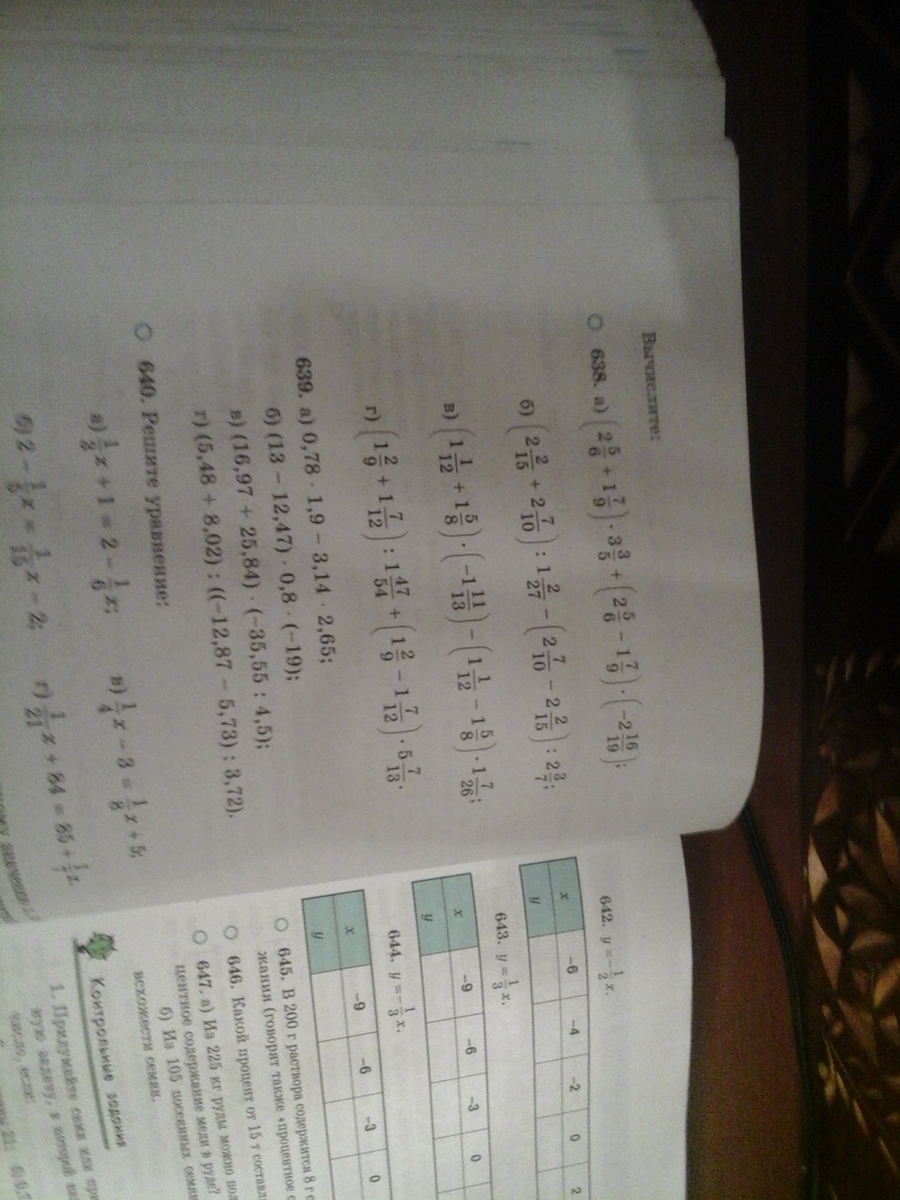 Вычислите:
638. а) (2 5/6 + 1 7/9) · 3 3/5 + (2 5/6 − 1 7/9) · (−2 16/19);
б) (2 2/15 + 2 7/10) : 1 2/27 − (2 7/10 − 2 2/15) : 2 3/7;
в) (1 1/12 + 1 5/8) · (−1 11/13) − (1 1/12 − 1 5/8) · 1 7/26;
г) (1 2/9 + 1 7/12) : 1 47/54 + (1 2/9 − 1 7/12) · 5 7/13.
639. а) 0,78 · 1,9 − 3,14 · 2,65;
б) (13 − 12,47) · 0,8 · (−19);
в) (16,97 + 25,84) · (−35,55 : 4,5);
г) (5,48 + 8,02) : ((−12,87 − 5,73) : 3,72).
640. Решите уравнение:
а) 1/3 x + 1 = 2 − 1/6 x; в) 1/4 x − 3 = 1/8 x + 5;
б) 2 − 1/5 x = 1/15 x − 2; г) 1/21 x + 84 = 85 + 1/7 x
642. y = −1/2 x.
x −6 −4 −2 0 2
y
643. y = 1/3 x.
x −9 −6 −3 0
y
644. y = −1/3 x.
x −9 −6 −3 0
y
645. В 200 г раствора содержится 8 г
жания (говорят также «процентное
646. Какой процент от 15 т
647. а) Из 225 кг руды можно
центное содержание меди в руде?
б) Из 105 посеянных
всхожести семян.
Контрольные задания
1. Придумайте семи или
ную задачу, в которой
число, если: